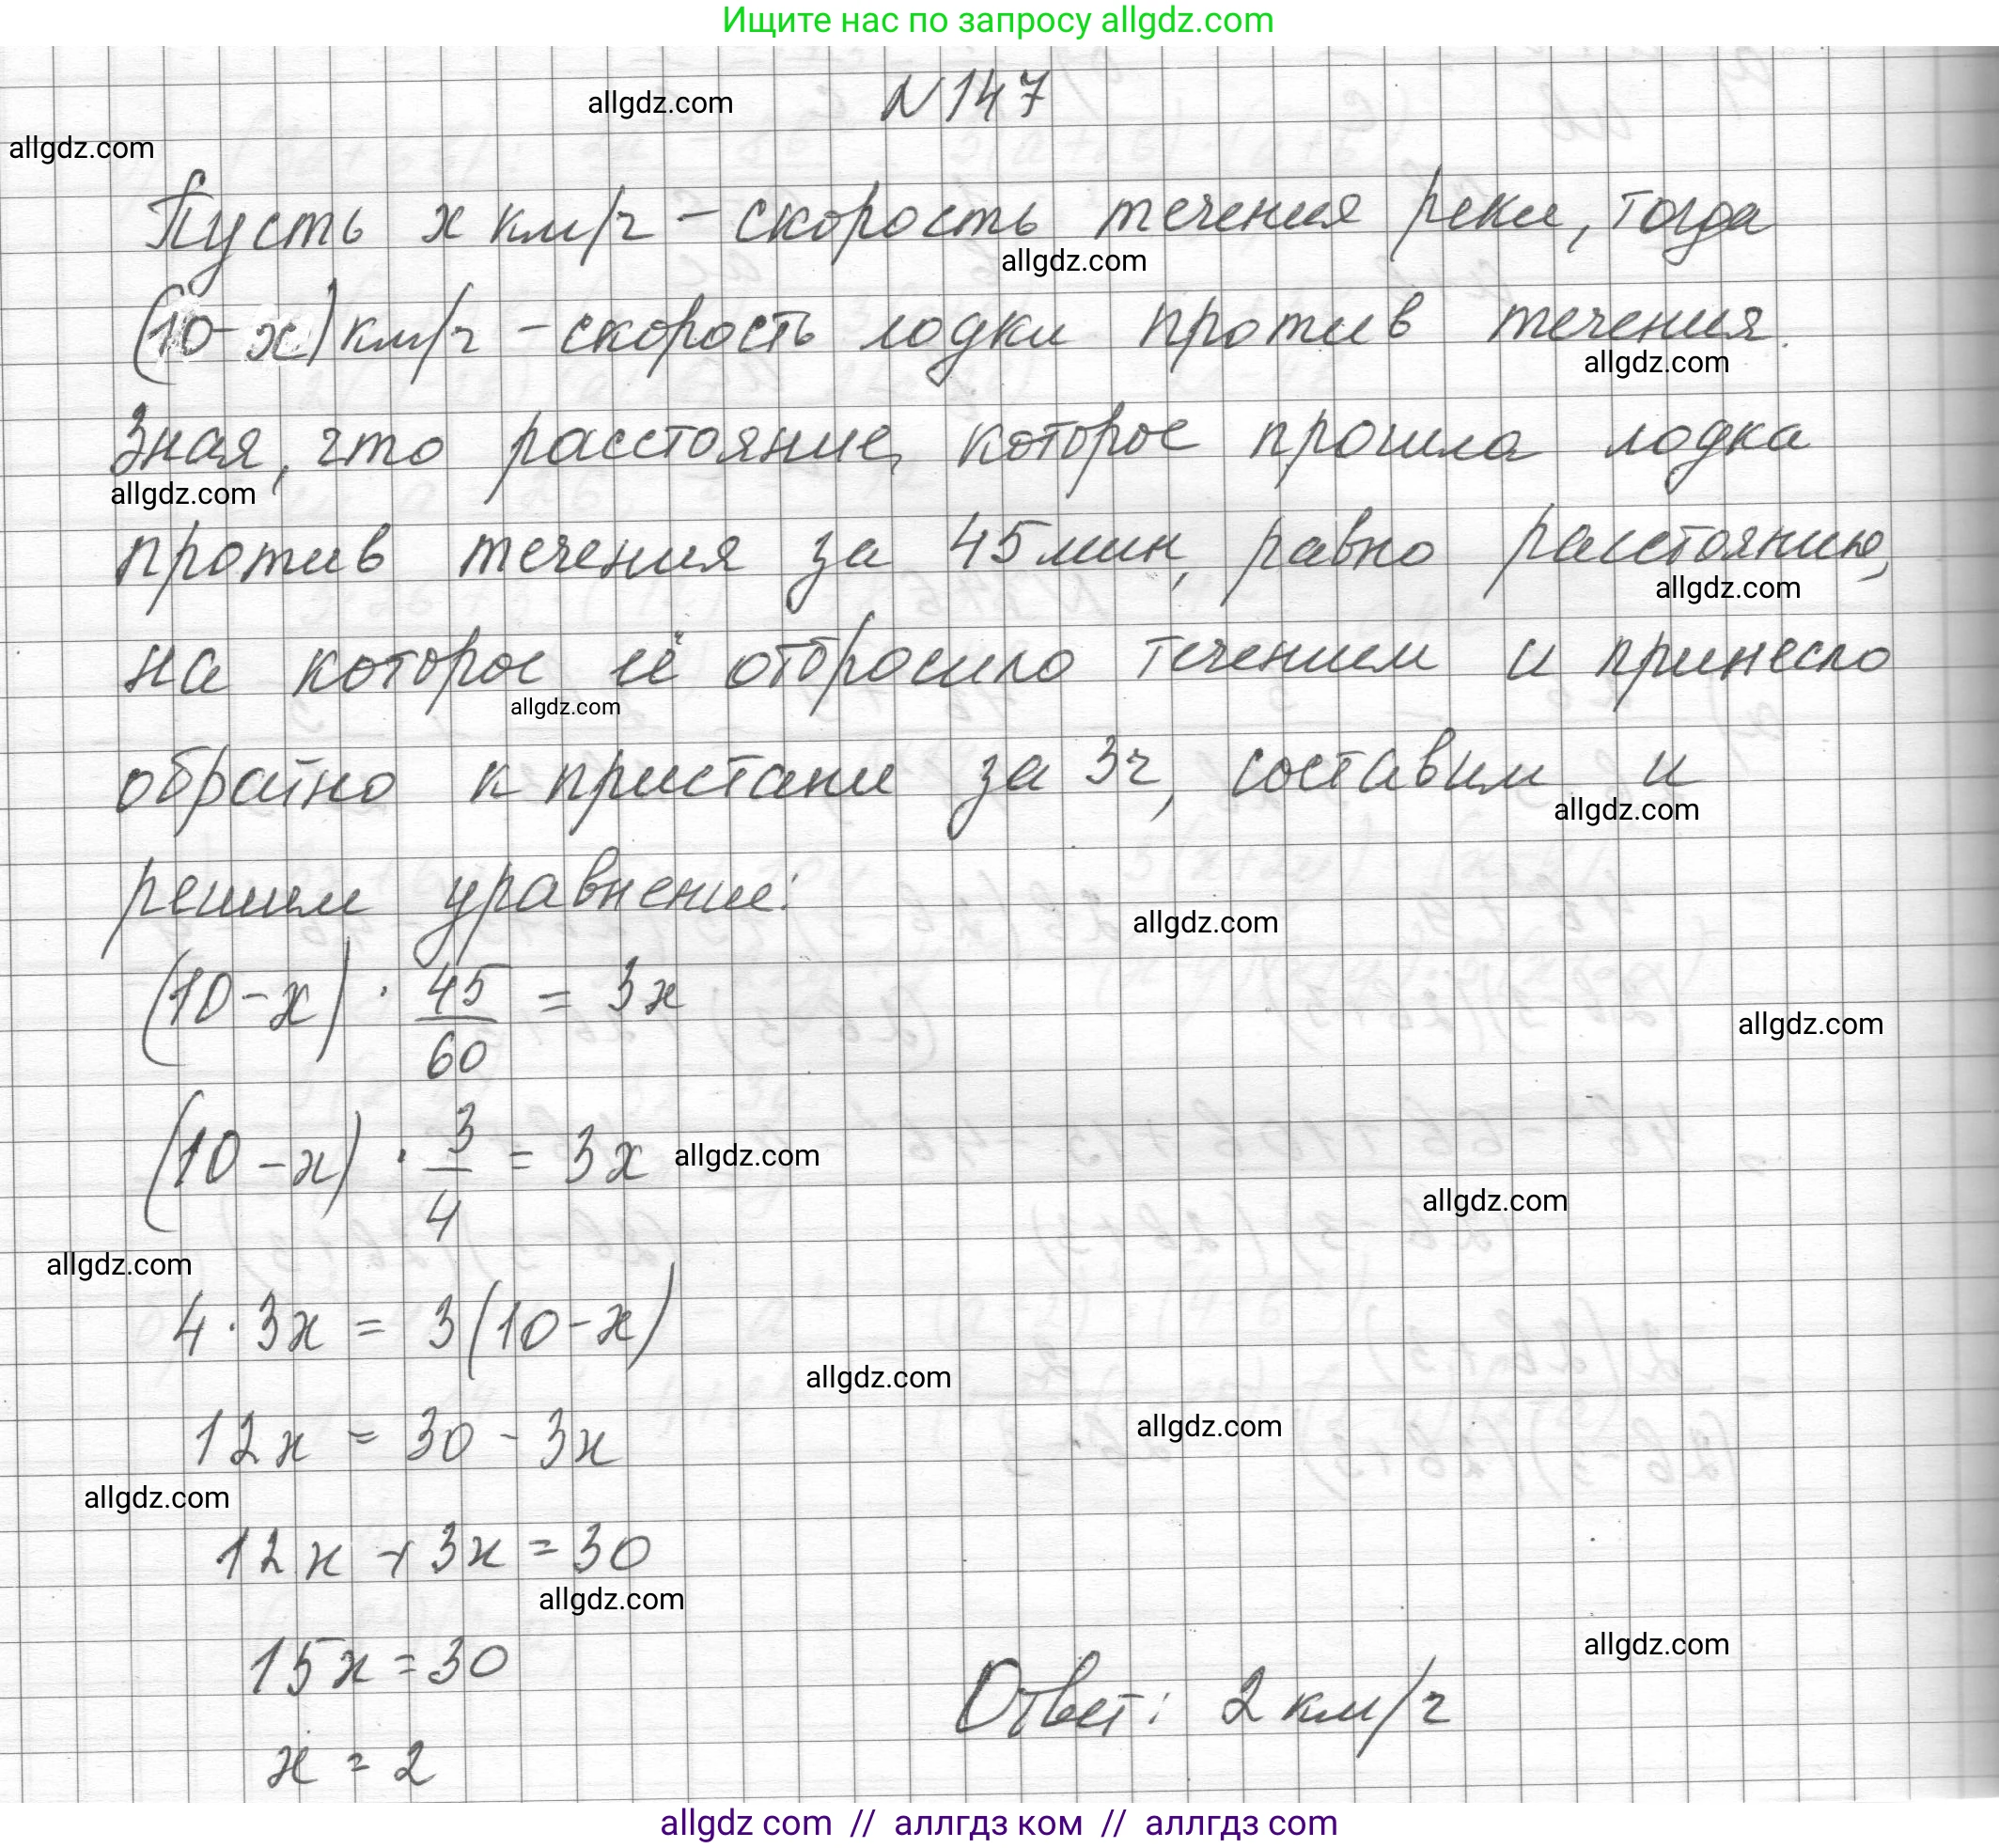 Ищите нас по запросу allgdz.com
allgdz.com
№147
allgdz.com
Пусть x км/ч – скорость течения реки, тогда
allgdz.com
(10-x) км/ч – скорость лодки против течения.
allgdz.com
Зная, что расстояние, которое прошла лодка
allgdz.com
против течения за 45 мин, равно расстоянию,
allgdz.com
на которое её отбросило течением и принесло
allgdz.com
обратно к пристани за 3ч, составим и
allgdz.com
решим уравнение:
allgdz.com
(10-x) · 45/60 = 3x
allgdz.com
(10-x) · 3/4 = 3x
allgdz.com
allgdz.com
allgdz.com
4·3x = 3(10-x)
allgdz.com
allgdz.com
12x = 30-3x
allgdz.com
12x + 3x = 30
allgdz.com
allgdz.com
15x = 30
Ответ: 2 км/ч
x = 2
allgdz com // аллгдз ком // аллгдз com